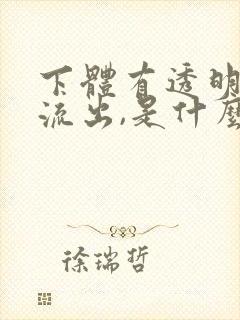 下體有透明
流出,是什麼
徐瑞哲